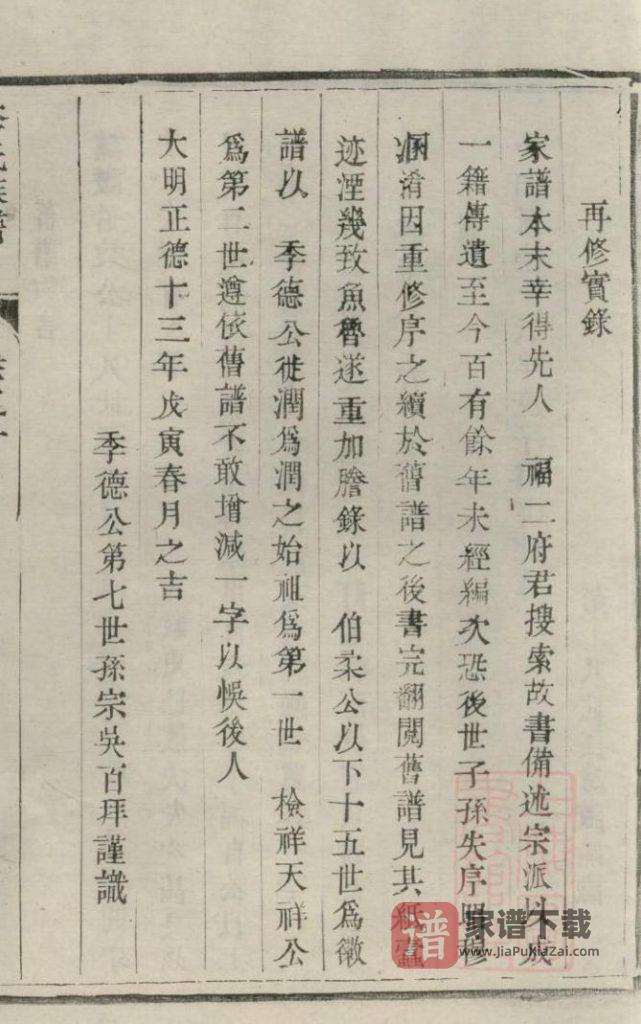 再修實錄
家譜本末幸得先人 福二府君搜索故書備述宗派以成
一籍傳遺至今百有餘年未經編次恐後世子孫失序昭穆
溷淆因重修序之續於舊譜之後書完翻閱舊譜見其紙蠹
迹湮幾致魚魯遂重加謄錄以 伯柔公以下十五世爲徽
譜以 季德公徙潤爲潤之始祖爲第一世 檢祥天祥公
爲第二世遵依舊譜不敢增減一字以悞後人
大明正德十三年戊寅春月之吉
季德公第七世孫宗吳百拜謹識
氏族譜
譜 家谱下载
www.JiaPuXiaZai.com